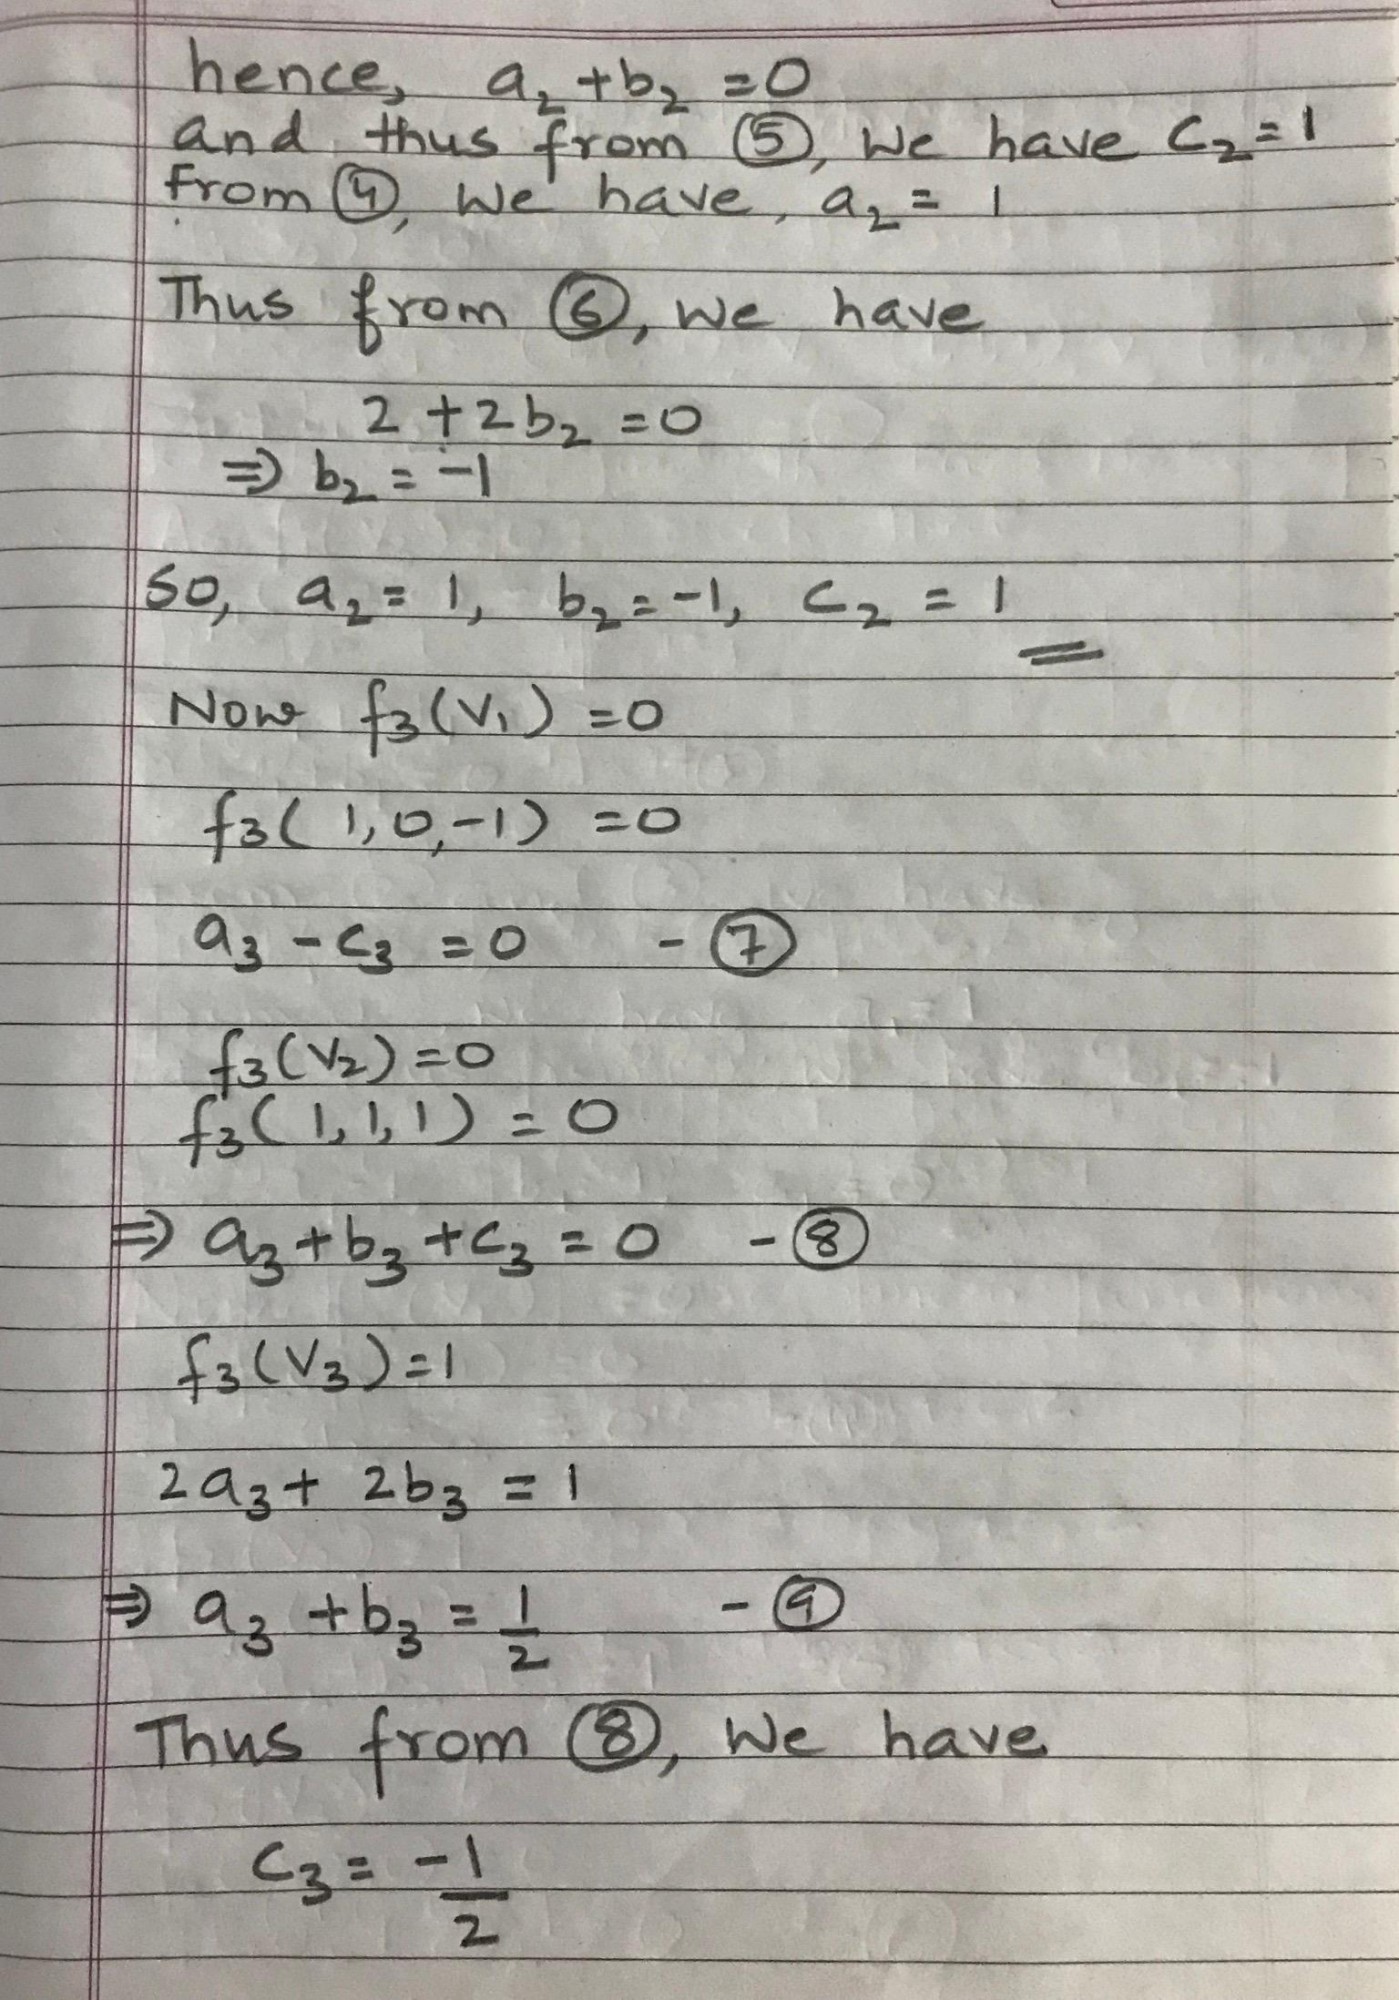 hence, a₂ + b₂ = 0
and thus from ⑤, we have c₂ = 1
from ④, we have, a₂ = 1
Thus from ⑥, we have
2 + 2b₂ = 0
⇒ b₂ = -1
So, a₂ = 1, b₂ = -1, c₂ = 1
Now f₃(v₁) = 0
f₃(1,0,-1) = 0
a₃ - c₃ = 0 - ⑦
f₃(v₂) = 0
f₃(1,1,1) = 0
⇒ a₃ + b₃ + c₃ = 0 - ⑧
f₃(v₃) = 1
2a₃ + 2b₃ = 1
⇒ a₃ + b₃ = 1/2 - ⑨
Thus from ⑧, we have
c₃ = -1/2